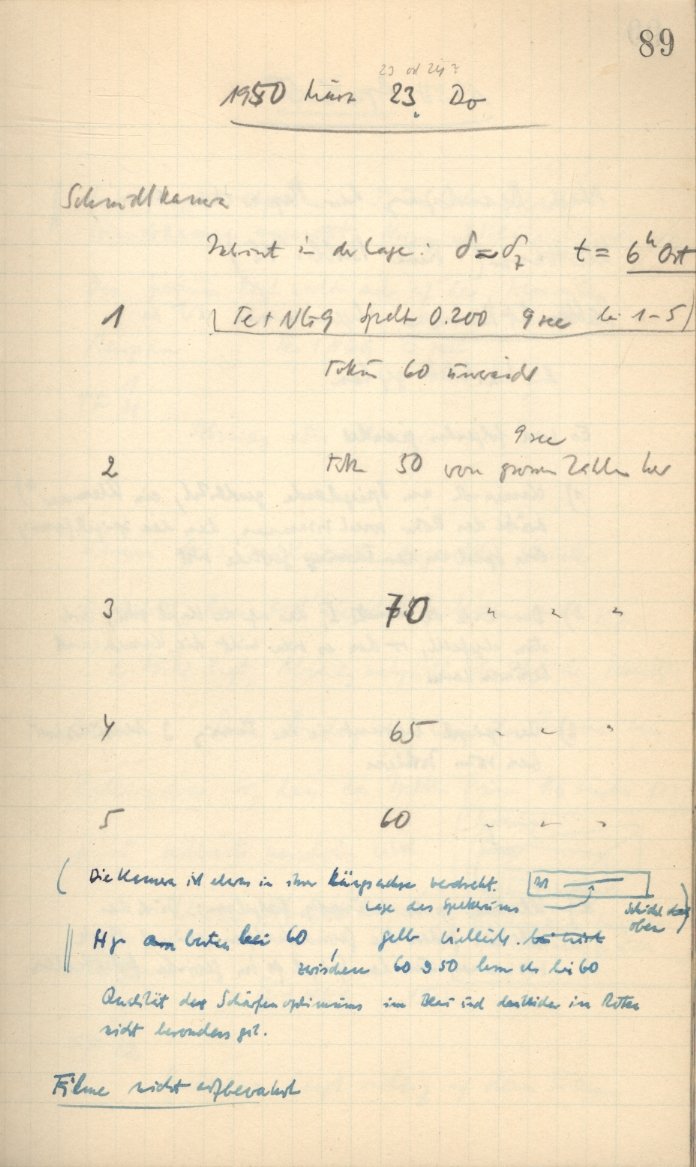 89
23 od 24?
1950 März 23. Do
Schmidtkamera
in der Lage: δ = δz t = 6h Ost
1 Te + Spalt 0.200 9 sec bei 1-5
Fokus 60
9 sec
2 Fok 50 von grossen Zahlen her
3 70 " " "
4 65 " " "
5 60 " " "
(Die Kamera ist etwas in ihrer Längsachse verdreht.
Lage des Spektrums
Schicht
oben)
Hγ am besten bei 60, gelb vielleicht
zwischen 60 & 50 besser als bei 60
Qualität des Schärfenoptimums im Blau und im Roten
nicht besonders gut.
Filme nicht aufbewahrt